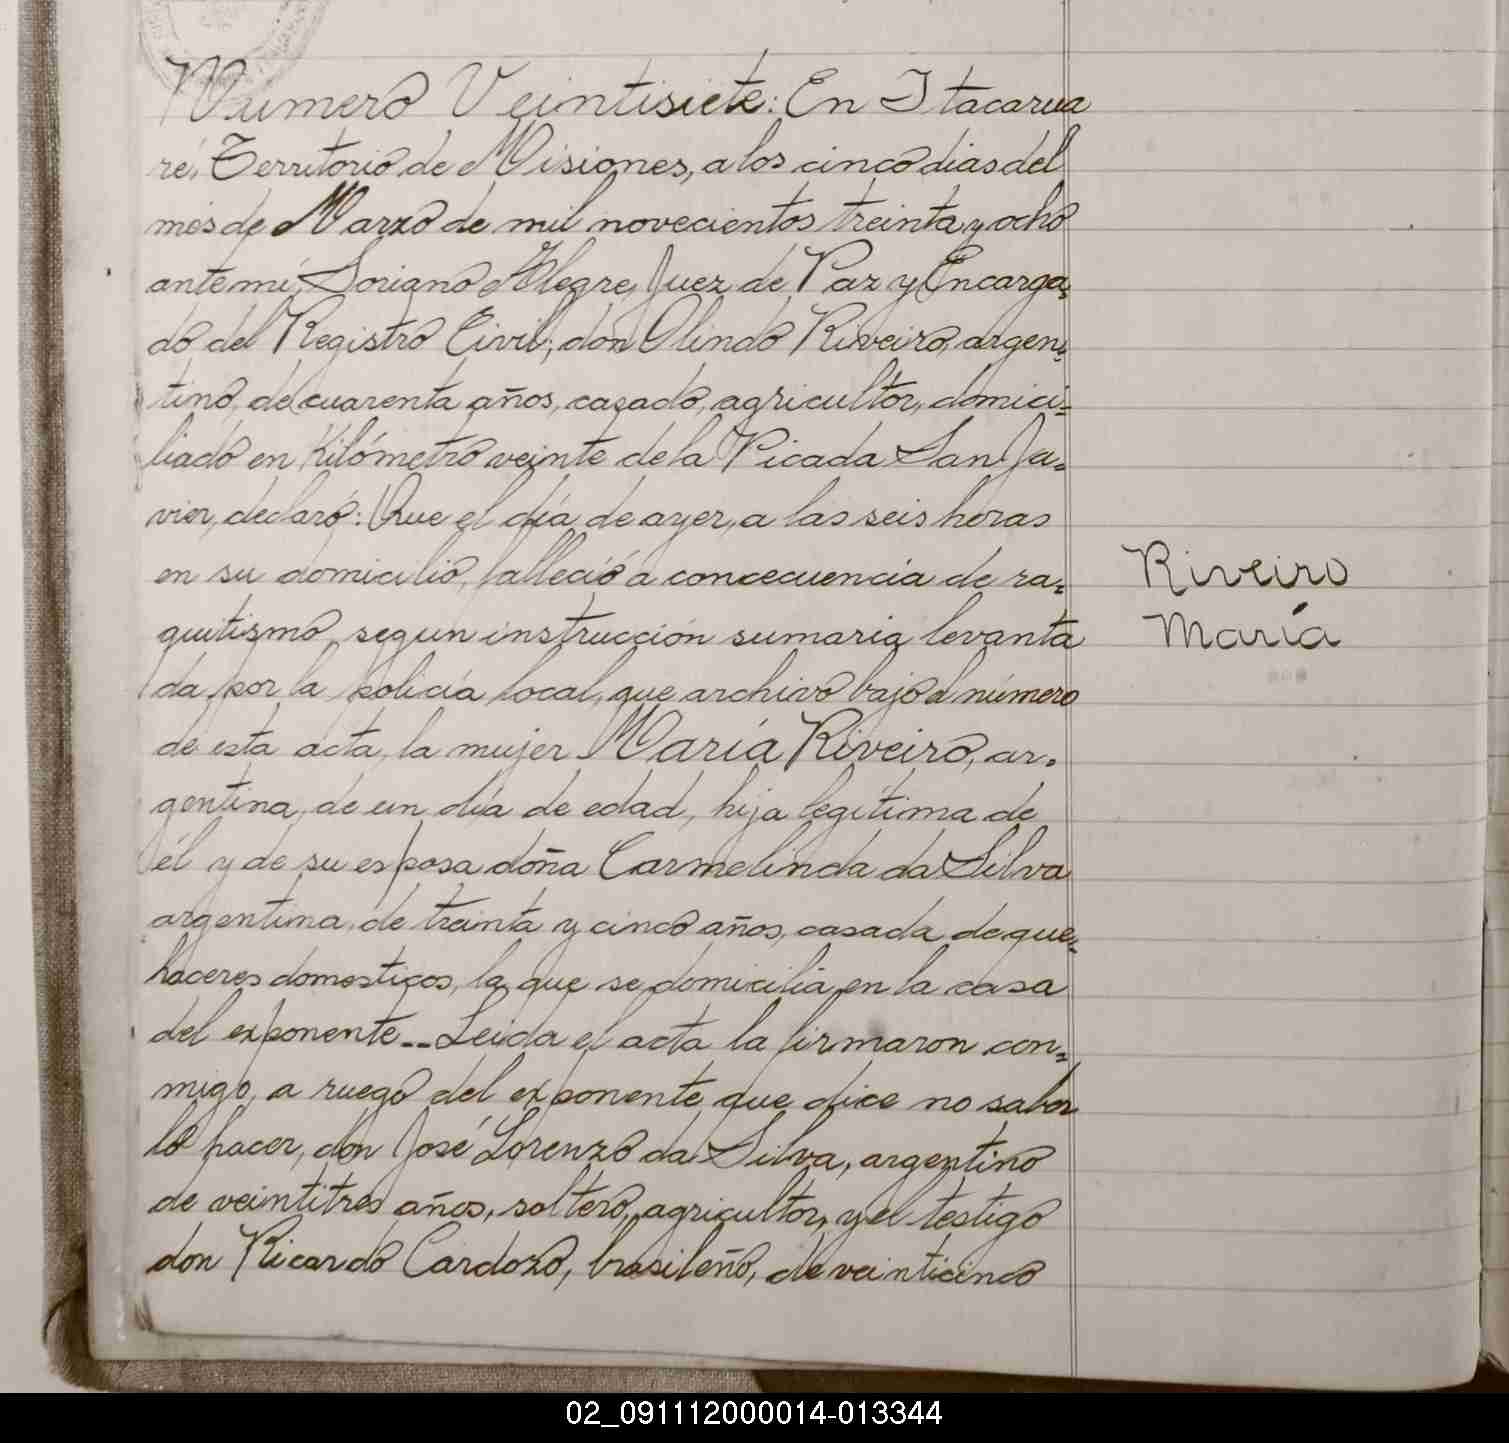 Número Veintisiete: En Itacarua
ré, Territorio de Misiones, a los cinco dias del
més de Marzo de mil novecientos treinta y ocho
ante mí, Soriano Alegre, Juez de Paz y Encarga-
do del Registro Civil; don Olindo Riveiro, argen-
tino, de cuarenta años, casado, agricultor, domici-
liado en Kilómetro veinte de la Picada San Ja-
vier, declaró: Que el día de ayer, a las seis horas
en su domicilio, falleció a concecuencia de ra-
quitismo, segun instrucción sumaria levanta
da por la policía local, que archivo bajo el número
de esta acta, la mujer María Riveiro, ar-
gentina, de un día de edad, hija legítima de
él y de su esposa doña Carmelinda da Silva
argentina, de treinta y cinco años, casada, de que-
haceres domesticos, la que se domicilia en la casa
del exponente.-- Leida el acta la firmaron con-
migo, a ruego del exponente que dice no saber
lo hacer, don José Lorenzo da Silva, argentino
de veintitres años, soltero, agricultor, y el testigo
don Ricardo Cardozo, brasileño, de veinticinco
Riveiro
María
02_091112000014-013344